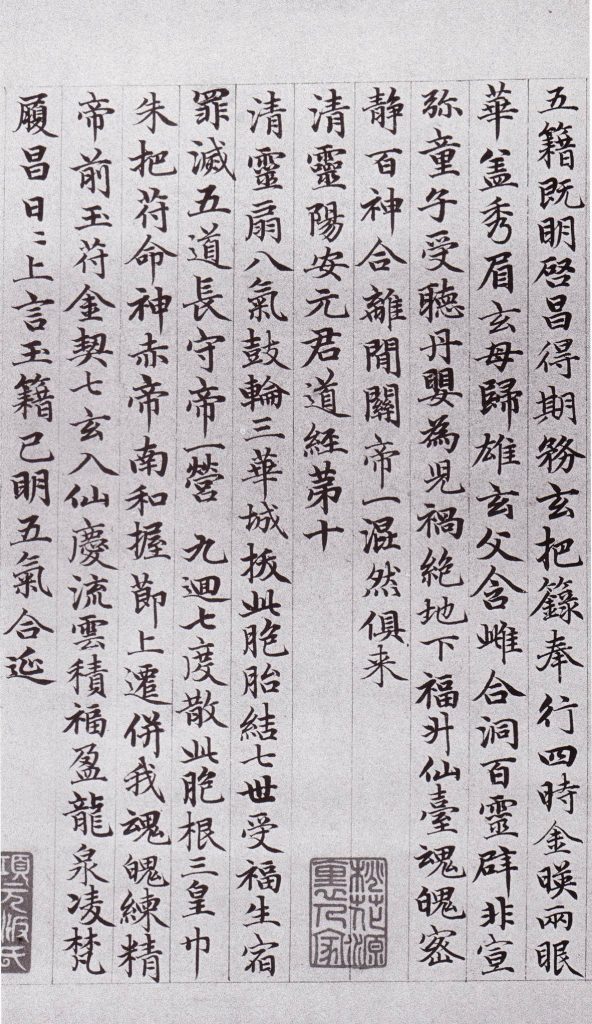 五籍既明啓昌得期務玄把籙奉行四時金暎兩眼
華盖秀眉玄母歸雄玄父含雌合洞百靈辟非宣
弥童子受聴丹嬰為児禍絶地下福升仙臺魂魄宻
静百神合離開關帝一混然俱来
清靈陽安元君道經苐十
清靈扇八氣鼓輪三華城拔此胞胎結七世受福生宿
罪滅五道長守帝一營 九迴七度散此胞根三皇巾
朱把苻命神赤帝南和握莭上遷併我魂魄練精
帝前玉苻金契七玄入仙慶流雲積福盈龍泉凌梵
履昌日〻上言玉籍已明五氣合延
桃花源裏人家